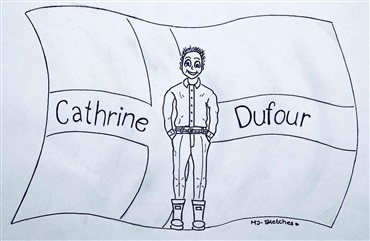 Cathrine Dufour
MJ-Sketches